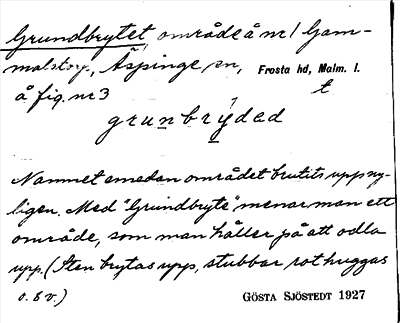 Grundbrytet, område å nr 1 Gam-
malstorp, Äspinge sn, Frosta hd, Malm. l.
å fig. nr 3 t
grunbrýded
Namnet emedan området brutits upp ny-
ligen. Med "Grundbryte" menar man ett
område, som man håller på att odla
upp. (Sten brytas upp, stubbar rothuggas
o.s.v.) GÖSTA SJÖSTEDT 1927